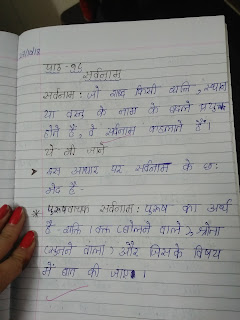 पाठ-१८
सर्वनाम
सर्वनाम : जो शब्द किसी व्यक्ति, स्थान
या वस्तु के नाम के बदले प्रयुक्त
होते हैं, वे सर्वनाम कहलाते हैं।
ये भी जाने
इस आधार पर सर्वनाम के छः
भेद हैं -
* पुरुषवाचक सर्वनाम : पुरुष का अर्थ
है व्यक्ति (वक्ता (बोलने वाले), श्रोता
(सुनने वाला) और जिसके विषय
में बात की जाए।